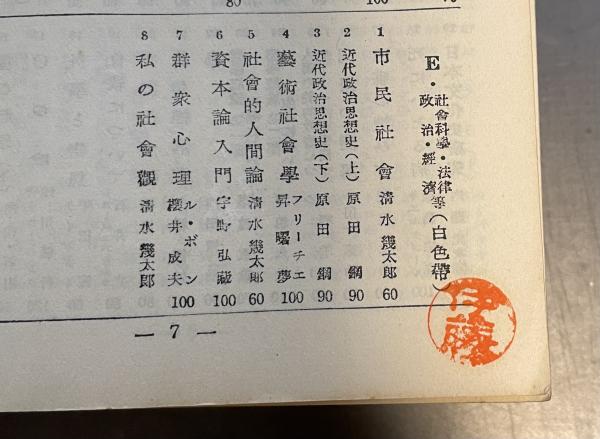 E・社會科學・法律等
政治・經濟
(白色帶)
1 市民社會 淸水幾太郎 60
2 近代政治思想史(上) 原田鋼 90
3 近代政治思想史(下) 原田鋼 90
4 藝術社會學 フリーチエ 昇曙夢 100
5 社會的人間論 淸水幾太郎 60
6 資本論入門 宇野弘藏 100
7 群衆心理 ル・ボン 櫻井成夫 100
8 私の社會觀 淸水幾太郎
— 7 —
伊藤
80
100